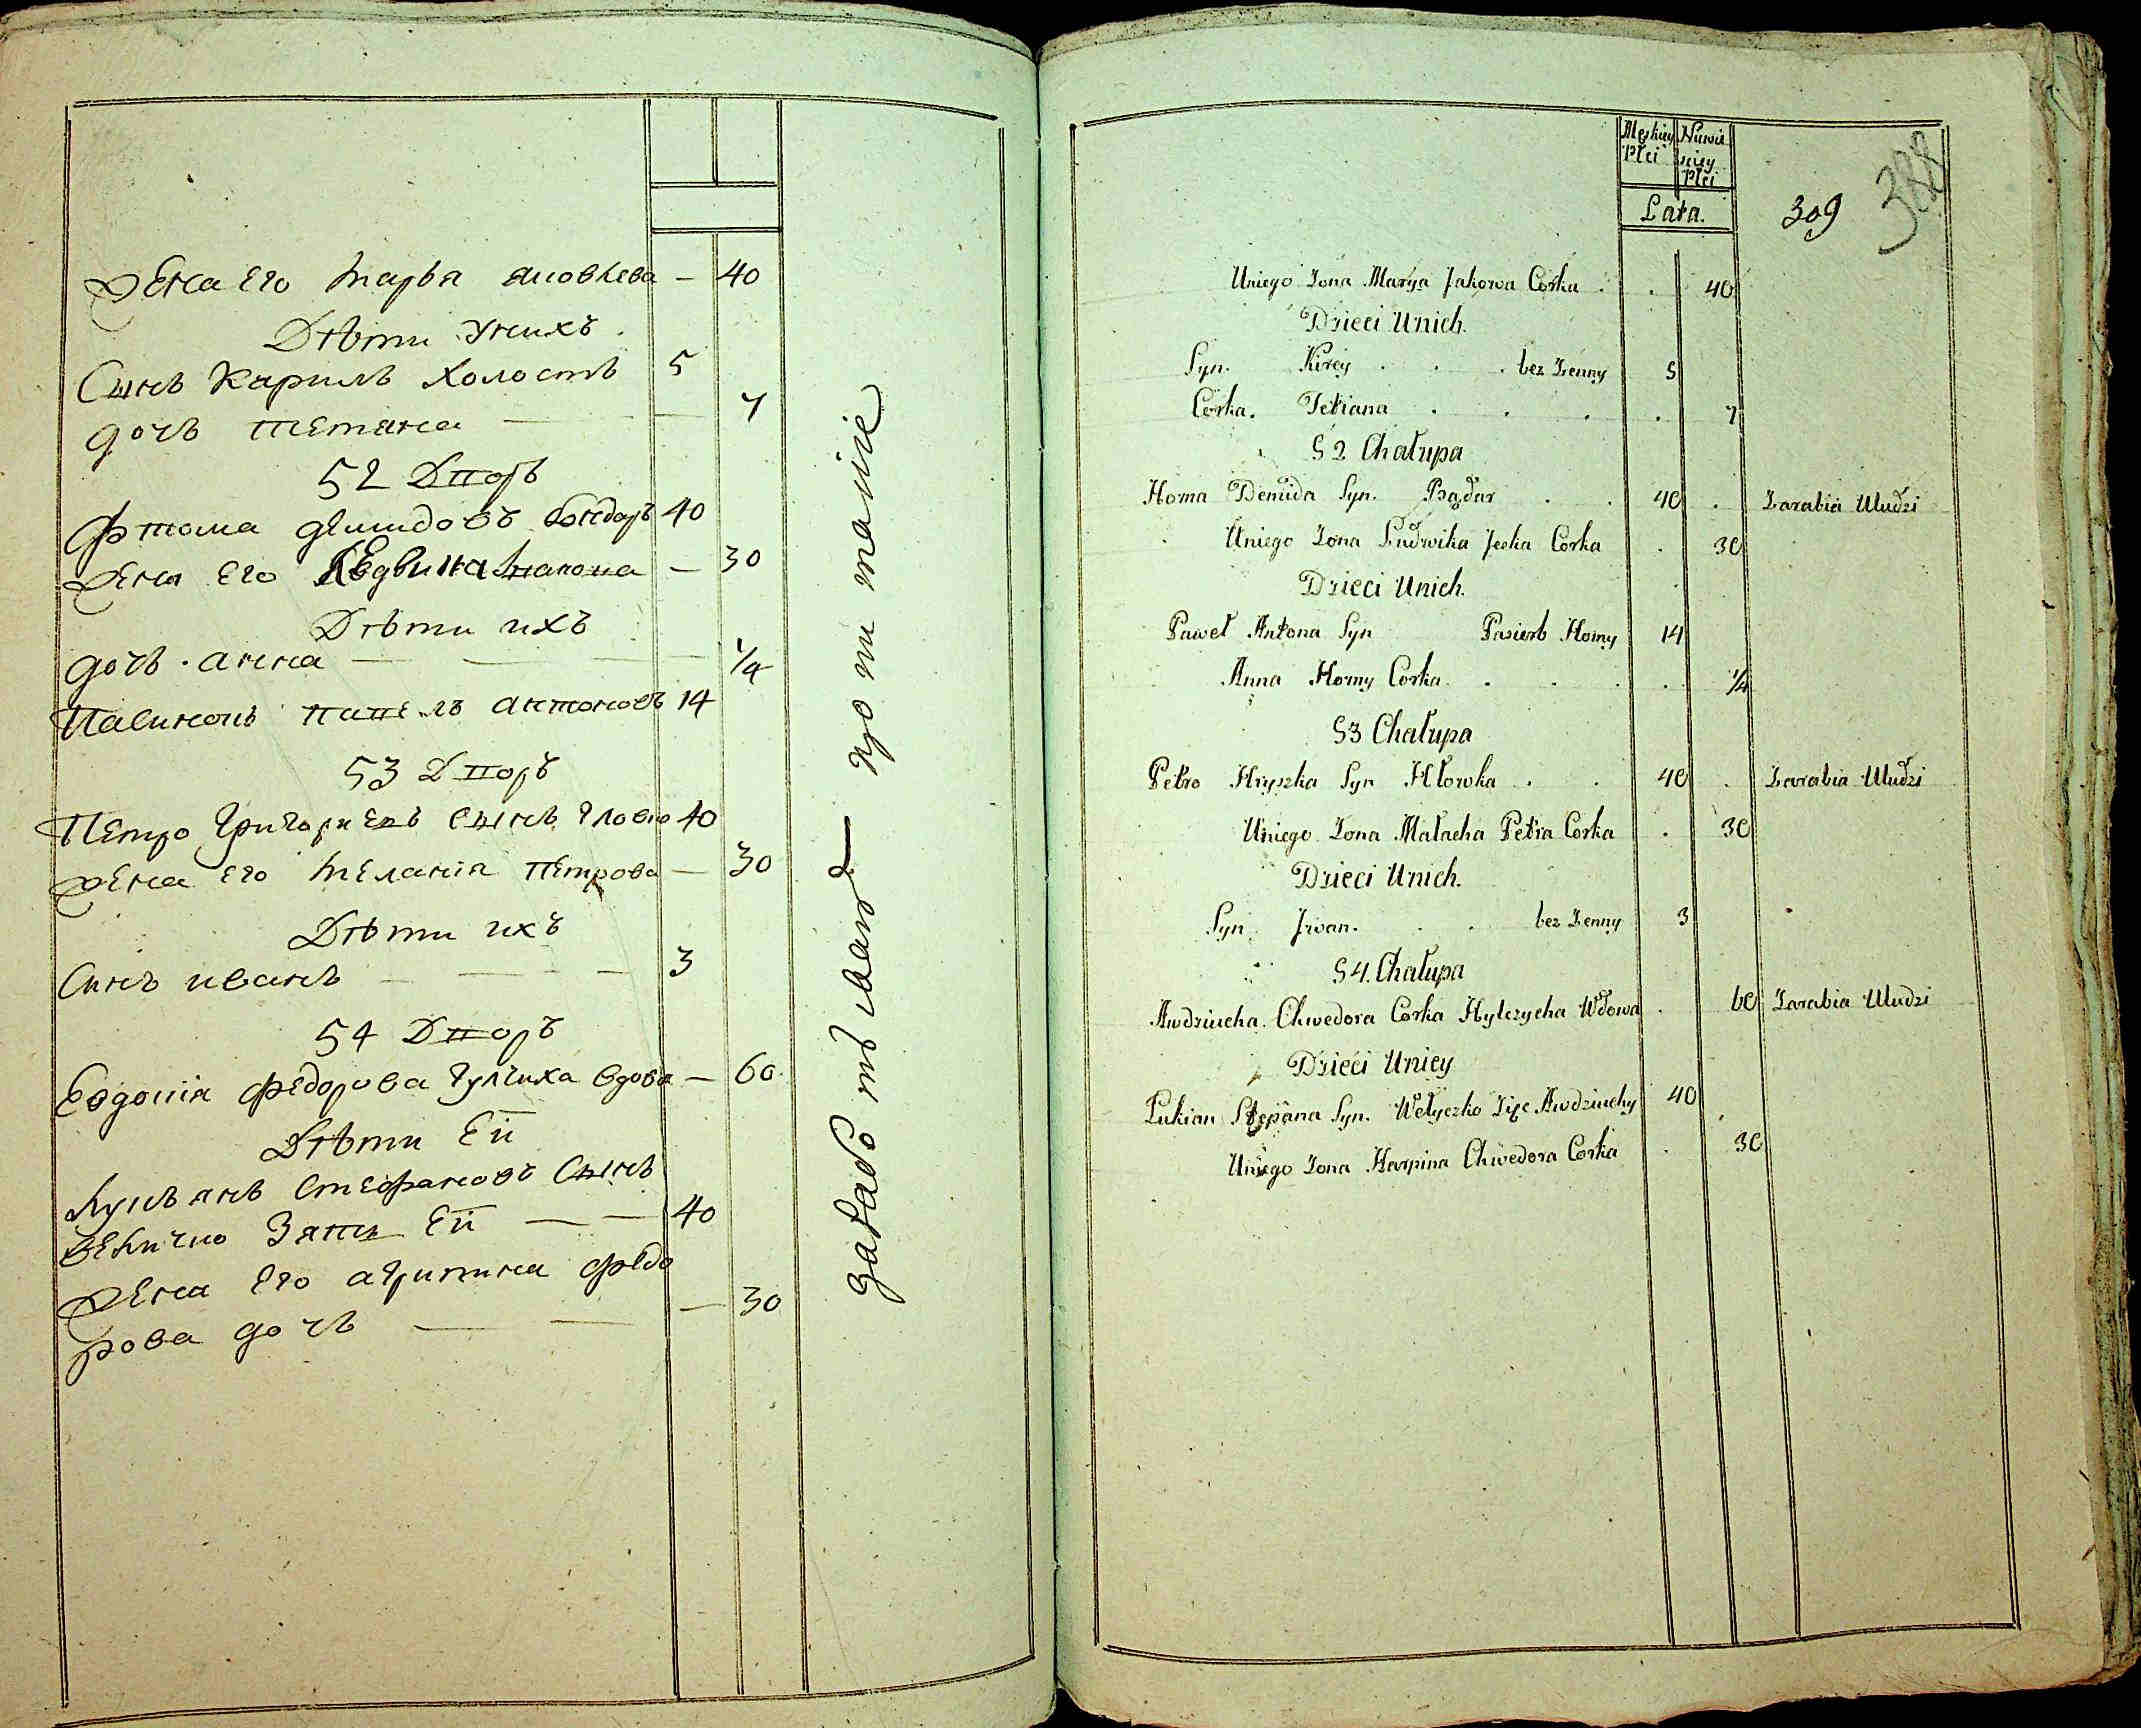 Жена его Марья яковлева — 40
Дѣти У нихъ.
Сынъ Карилъ Холостъ 5
дочь тетяна — — 7
52 Дворъ
Фтома демидовъ бондарь 40
Жена его — 30
Дѣти ихъ
дочь анна — — — — 1/4
Пасинокъ павелъ антоновъ 14
53 Дворъ
Петро Григориевъ сынъ Гловко 40
Жена его Меланія Петрова — 30
Дѣти ихъ
Синъ иванъ — — — 3
54 Дворъ
Евдокія Федорова Гулчиха вдова — 60
Дѣти Еи
Лукъянъ Стефановъ Сынъ
Величко Зять Еи — — 40
Жена его агрипина федо
рова дочь — — — 30
Męskiey Płci
Niewieściey Płci
Lata.
309
388
Uniego Żona Marya Jakowa Corka . . 40
Dzieci Unich.
Syn. Kirey . . . bez Żenny 5
Corka. Tetiana . . . . 7
52 Chałupa
Homa Demida Syn. Bądar . . 40 . Zarabia Uludzi
Uniego Żona Ludwika Jeska Corka . 30
Dzieci Unich.
Paweł Antona Syn Pasierb Homy 14
Anna Homy Corka . . . . 1/4
53 Chałupa
Petro Hryszka Syn Hłowka . . 40 . Zarabia Uludzi
Uniego Żona Małacha Petra Corka . 30
Dzieci Unich.
Syn Jwan. . . bez Żenny 3
54. Chałupa
Awdziucha. Chwedora Corka Hylczycha Wdowa . 60 Zarabia Uludzi
Dzieci Unicy
Łukian Stepana Syn. Wełyczko Zięć Awdziuchy 40 .
Uniego Żona Harpina Chwedora Corka . 30